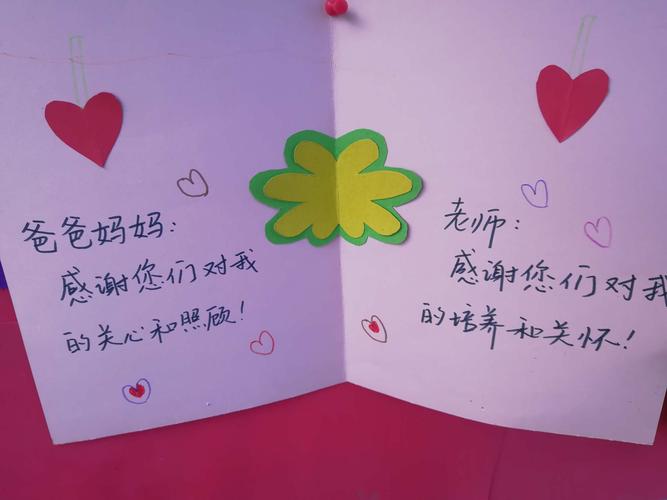 爸爸妈妈：
感谢您们对我
的关心和照顾！
老师：
感谢您们对我
的培养和关怀！